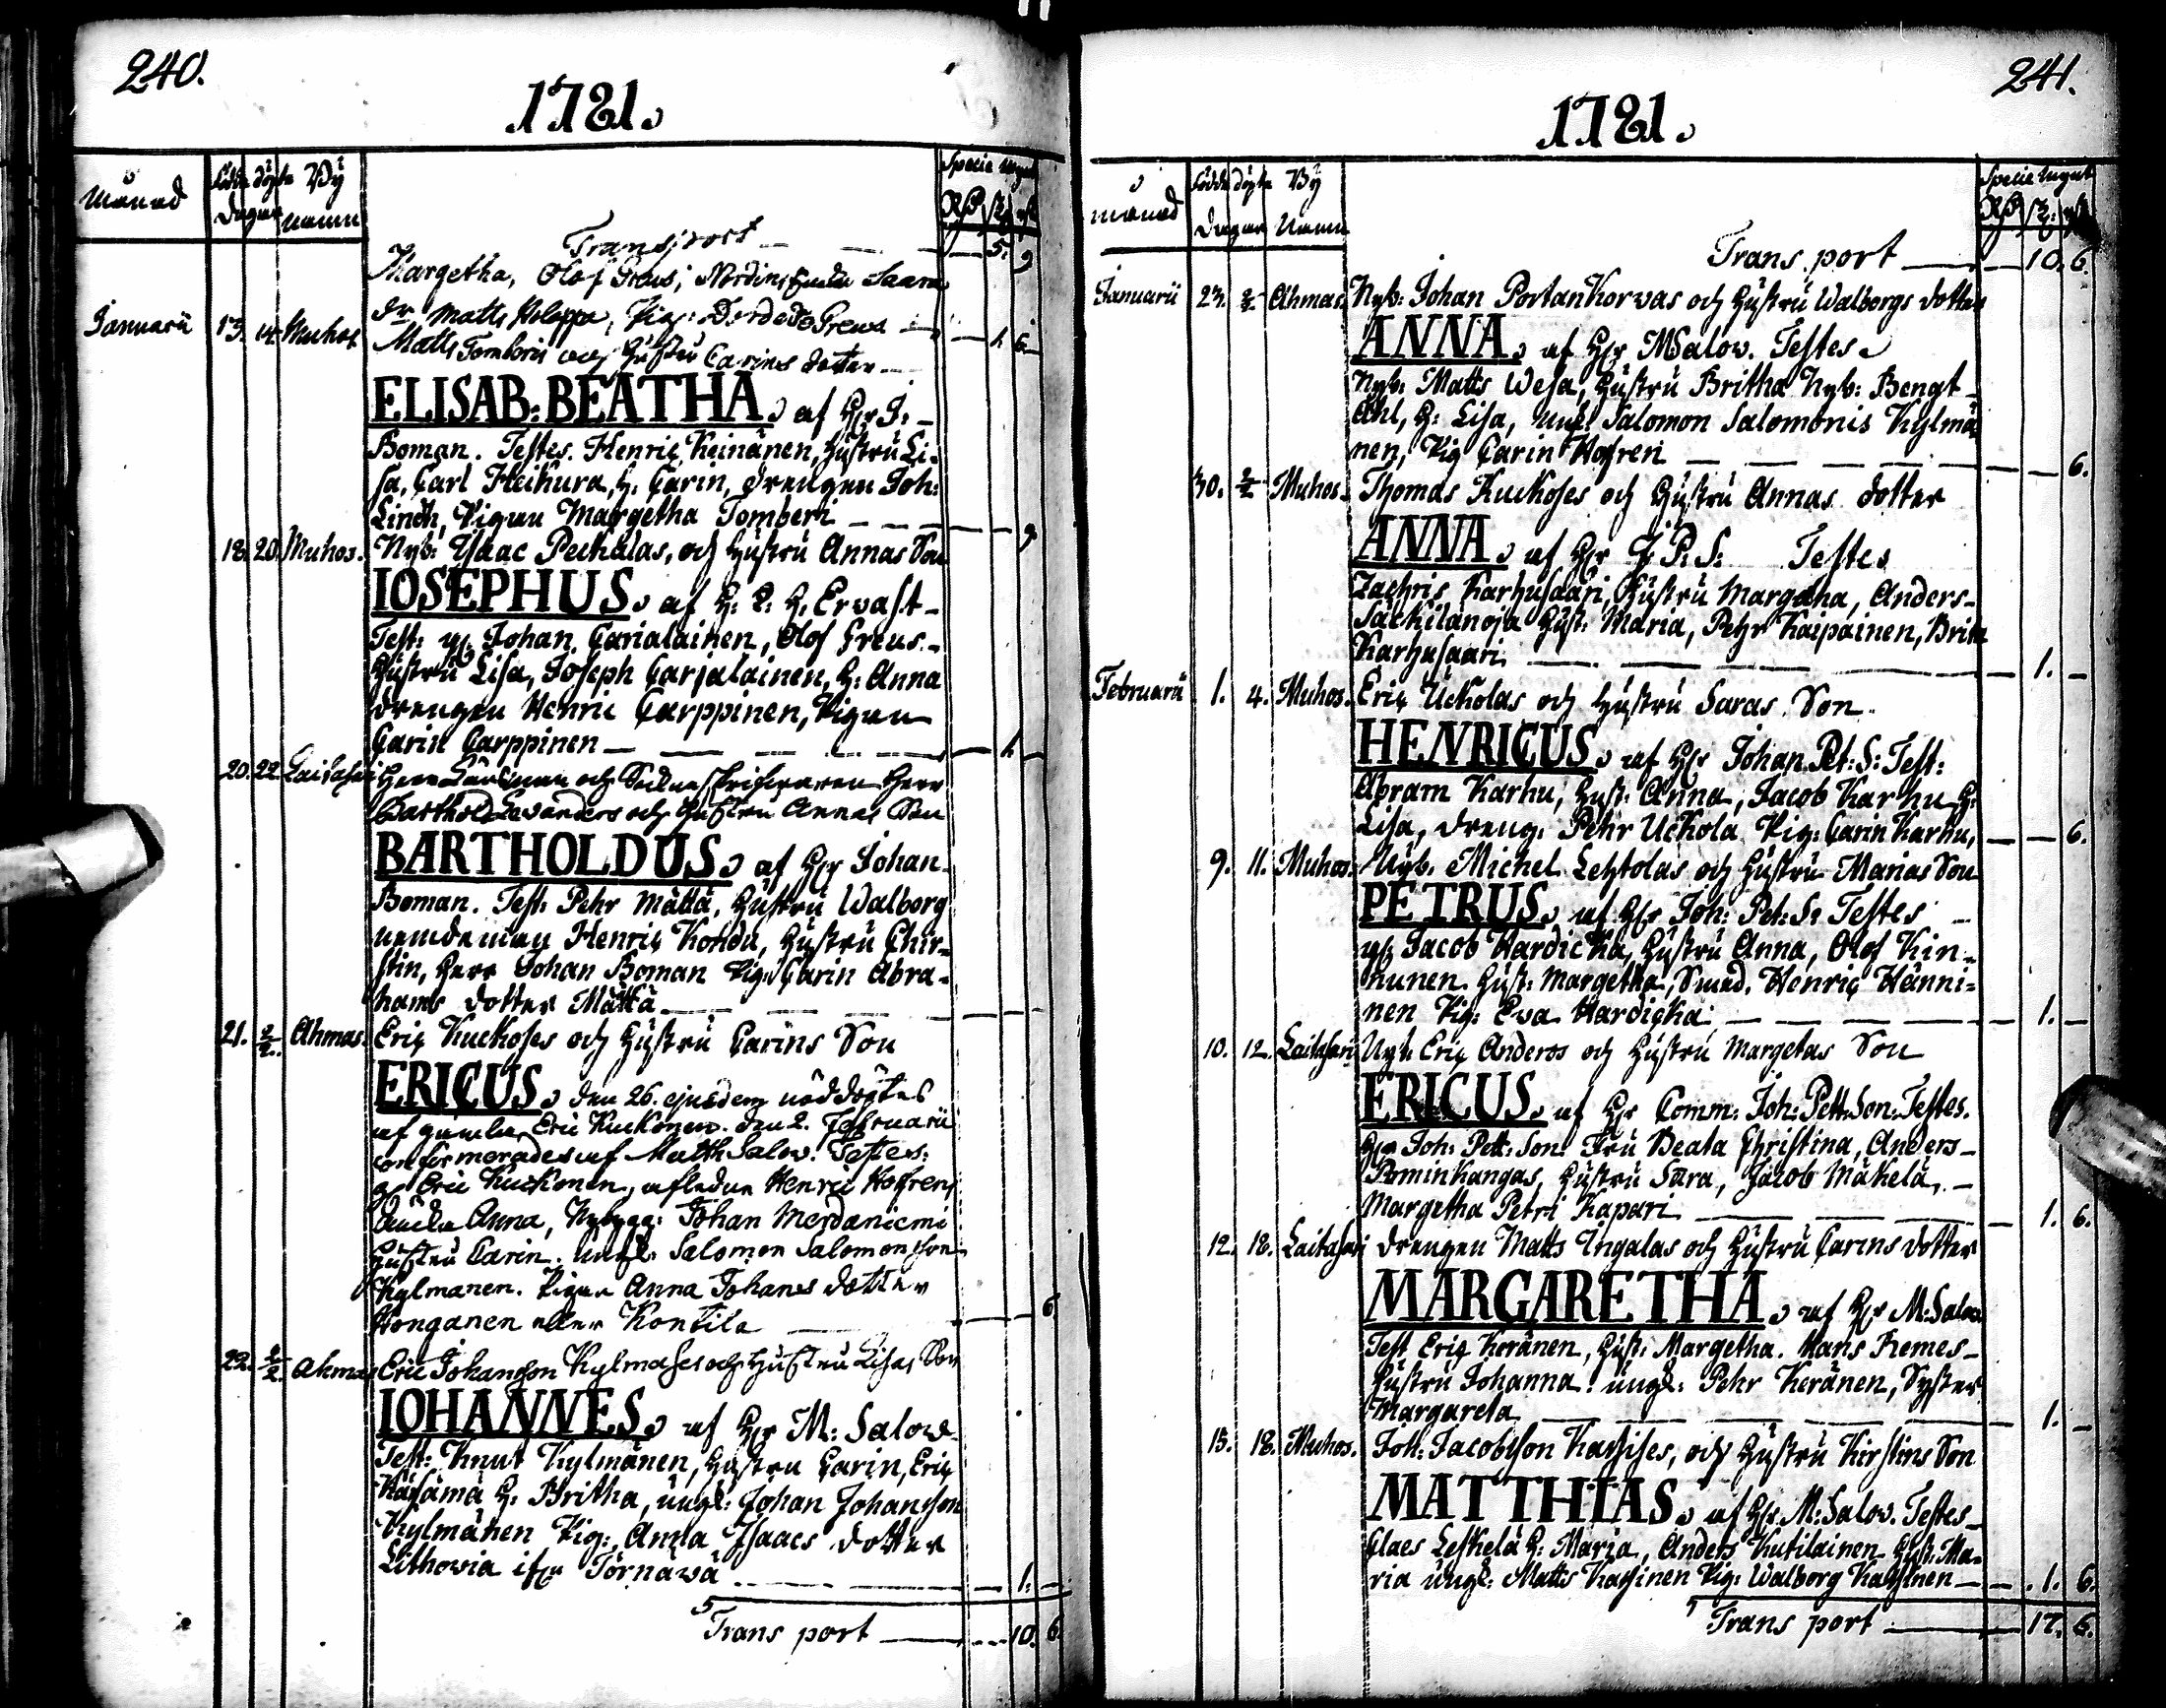 240.
1781.
Månad Födde döpte Dagar By Namn Specie Mynt
Transport 5. 9
Margetha, Olof Greus,
Matts Holappa, Greus
Januarii 13. 14. Muhos Matts Tomberis och Hustru Carins dotter 1. 6.
ELISAB: BEATHA. af H:r J:
Boman. Testes. Henric Keinänen, Hustru Li-
sa, Carl Heikura, H. Carin, drengen Joh:
Lindh, Pigan Margetha Tomberi 9
18. 20. Muhos. Nyb: Isaac Peckalas, och Hustru Annas Son
IOSEPHUS. af H: Ervast
Test: Johan Carialainen, Olof Greus.
Hustru Lisa, Joseph Carjalainen, H: Anna
drengen Henric Carppinen, Pigan
Carin Carppinen 1
20. 22. Laitasari Herr Länsman och Herr
Barthold Levanders och Hustru Annas Son
BARTHOLDUS. af H:r Johan
Boman. Test: Pehr Mättä, Hustru Walborg
nemdeman Henric Kondu, Hustru Chir-
stin, Herr Johan Boman Pig: Carin Abra-
hams dotter Mättä
21. 2/2. Ahmas. Eric Kuckoses och Hustru Carins Son
ERICUS. den 26. ejusdem nöddöptes
af gamla Eric Kuckonen. den 2. Februarii
confirmerades af Matth Salov. Testes:
Eric Kuckonen, afledne Henric Hofrens
Änka Anna, Nybygg: Johan Merdaniemi
Hustru Carin. Ungk: Salomon Salomonson
Kylmanen. Pigan Anna Johans dotter
Honganen eller Kontila 6.
22. 2/2. Ahmas Eric Johanson Kylmases och Hustru Lisas Son
IOHANNES. af H:r M: Salow
Test: Knut Kylmänen, Hustru Carin, Eric
Käsämä H: Britha, ungk: Johan Johanson
Kylmänen Pig: Anna Isaacs dotter
Lithovia ifrn Törnävä 1.
5 Trans port 10. 6.
241.
1781.
Månad Födde döpte Dagar By Namn Specie Mynt
Trans port 10. 6.
Januarii 23. 2/2 Ahmas. Nyb: Johan Portankorvas och Hustru Walborgs dotter
ANNA. af H:r M Salov. Testes
Nyb: Matts Wesa, Hustru Britha Nyb: Bengt
Ahl, H: Lisa, Ungk Salomon Salomonis Kylmä
nen, Pig Carin Hofren 6.
30. 2/2 Muhos. Thomas Kuckoses och Hustru Annas dotter
ANNA. af H:r J. P: S: Testes
Zachris Karhusaari, Hustru Margetha, Anders
Säckilänoja Hust: Maria, Pehr Karpainen, Brita
Karhusaari 1.
Februarii 1. 4. Muhos. Eric Uckolas och Hustru Saras Son
HENRICUS. af H:r Johan Pet: S: Test:
Abram Karhu, Hust: Anna, Jacob Karhu H:
Lisa, dreng: Pehr Uckola Pig: Carin Karhu, 6.
9. 11. Muhos. Nyb. Michel Lehtolas och Hustru Marias Son
PETRUS. af H:r Joh: Pet: S: Testes
Jacob Hardicka, Hustru Anna, Olof Kin-
nunen Hust: Margetha, Smed. Henric Hänni-
nen Pig: Eva Hardicka 1.
10. 12. Laitasari Nyb: Eric Anderos och Hustru Margetas Son
ERICUS. af H:r Comm: Joh: Pett: Son: Testes.
H:r Joh: Pett: Son: Fru Beata Christina, Anders
Pöminkangas, Hustru Sara, Jacob Mäkelä,
Margetha Petri Kapari 1. 6.
12. 18. Laitasari drengen Matts Ingalas och Hustru Carins dotter
MARGARETHA. af H:r M: Salov
Test Eric Keränen, Hust: Margetha. Hans Remes
Hustru Johanna. ungk: Pehr Keränen, Syster
Margareta 1.
15. 18. Muhos. Joh: Jacobson Kassises, och Hustru Kirstins Son
MATTHIAS. af H:r M: Salov. Testes
Claes Leskelä H: Maria, Anders Kutilainen Hust: Ma-
ria ungk: Matts Kassinen Pig: Walborg Kassinen 1. 6.
Trans port 17. 6.